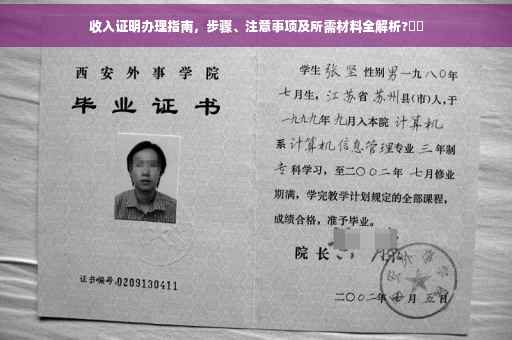 收入证明办理指南，步骤、注意事项及所需材料全解析?
西安外事学院
毕业证书
证书编号:0209130411
学生张坚性别男一九八〇年
七月生，江苏省苏州县(市)人，于
一九九九年九月入本院计算机
系计算机信息管理专业三年制
专科学习，至二〇〇二年七月修业
期满，学完教学计划规定的全部课程，
成绩合格，准予毕业。
院长
二〇〇二年 月五日